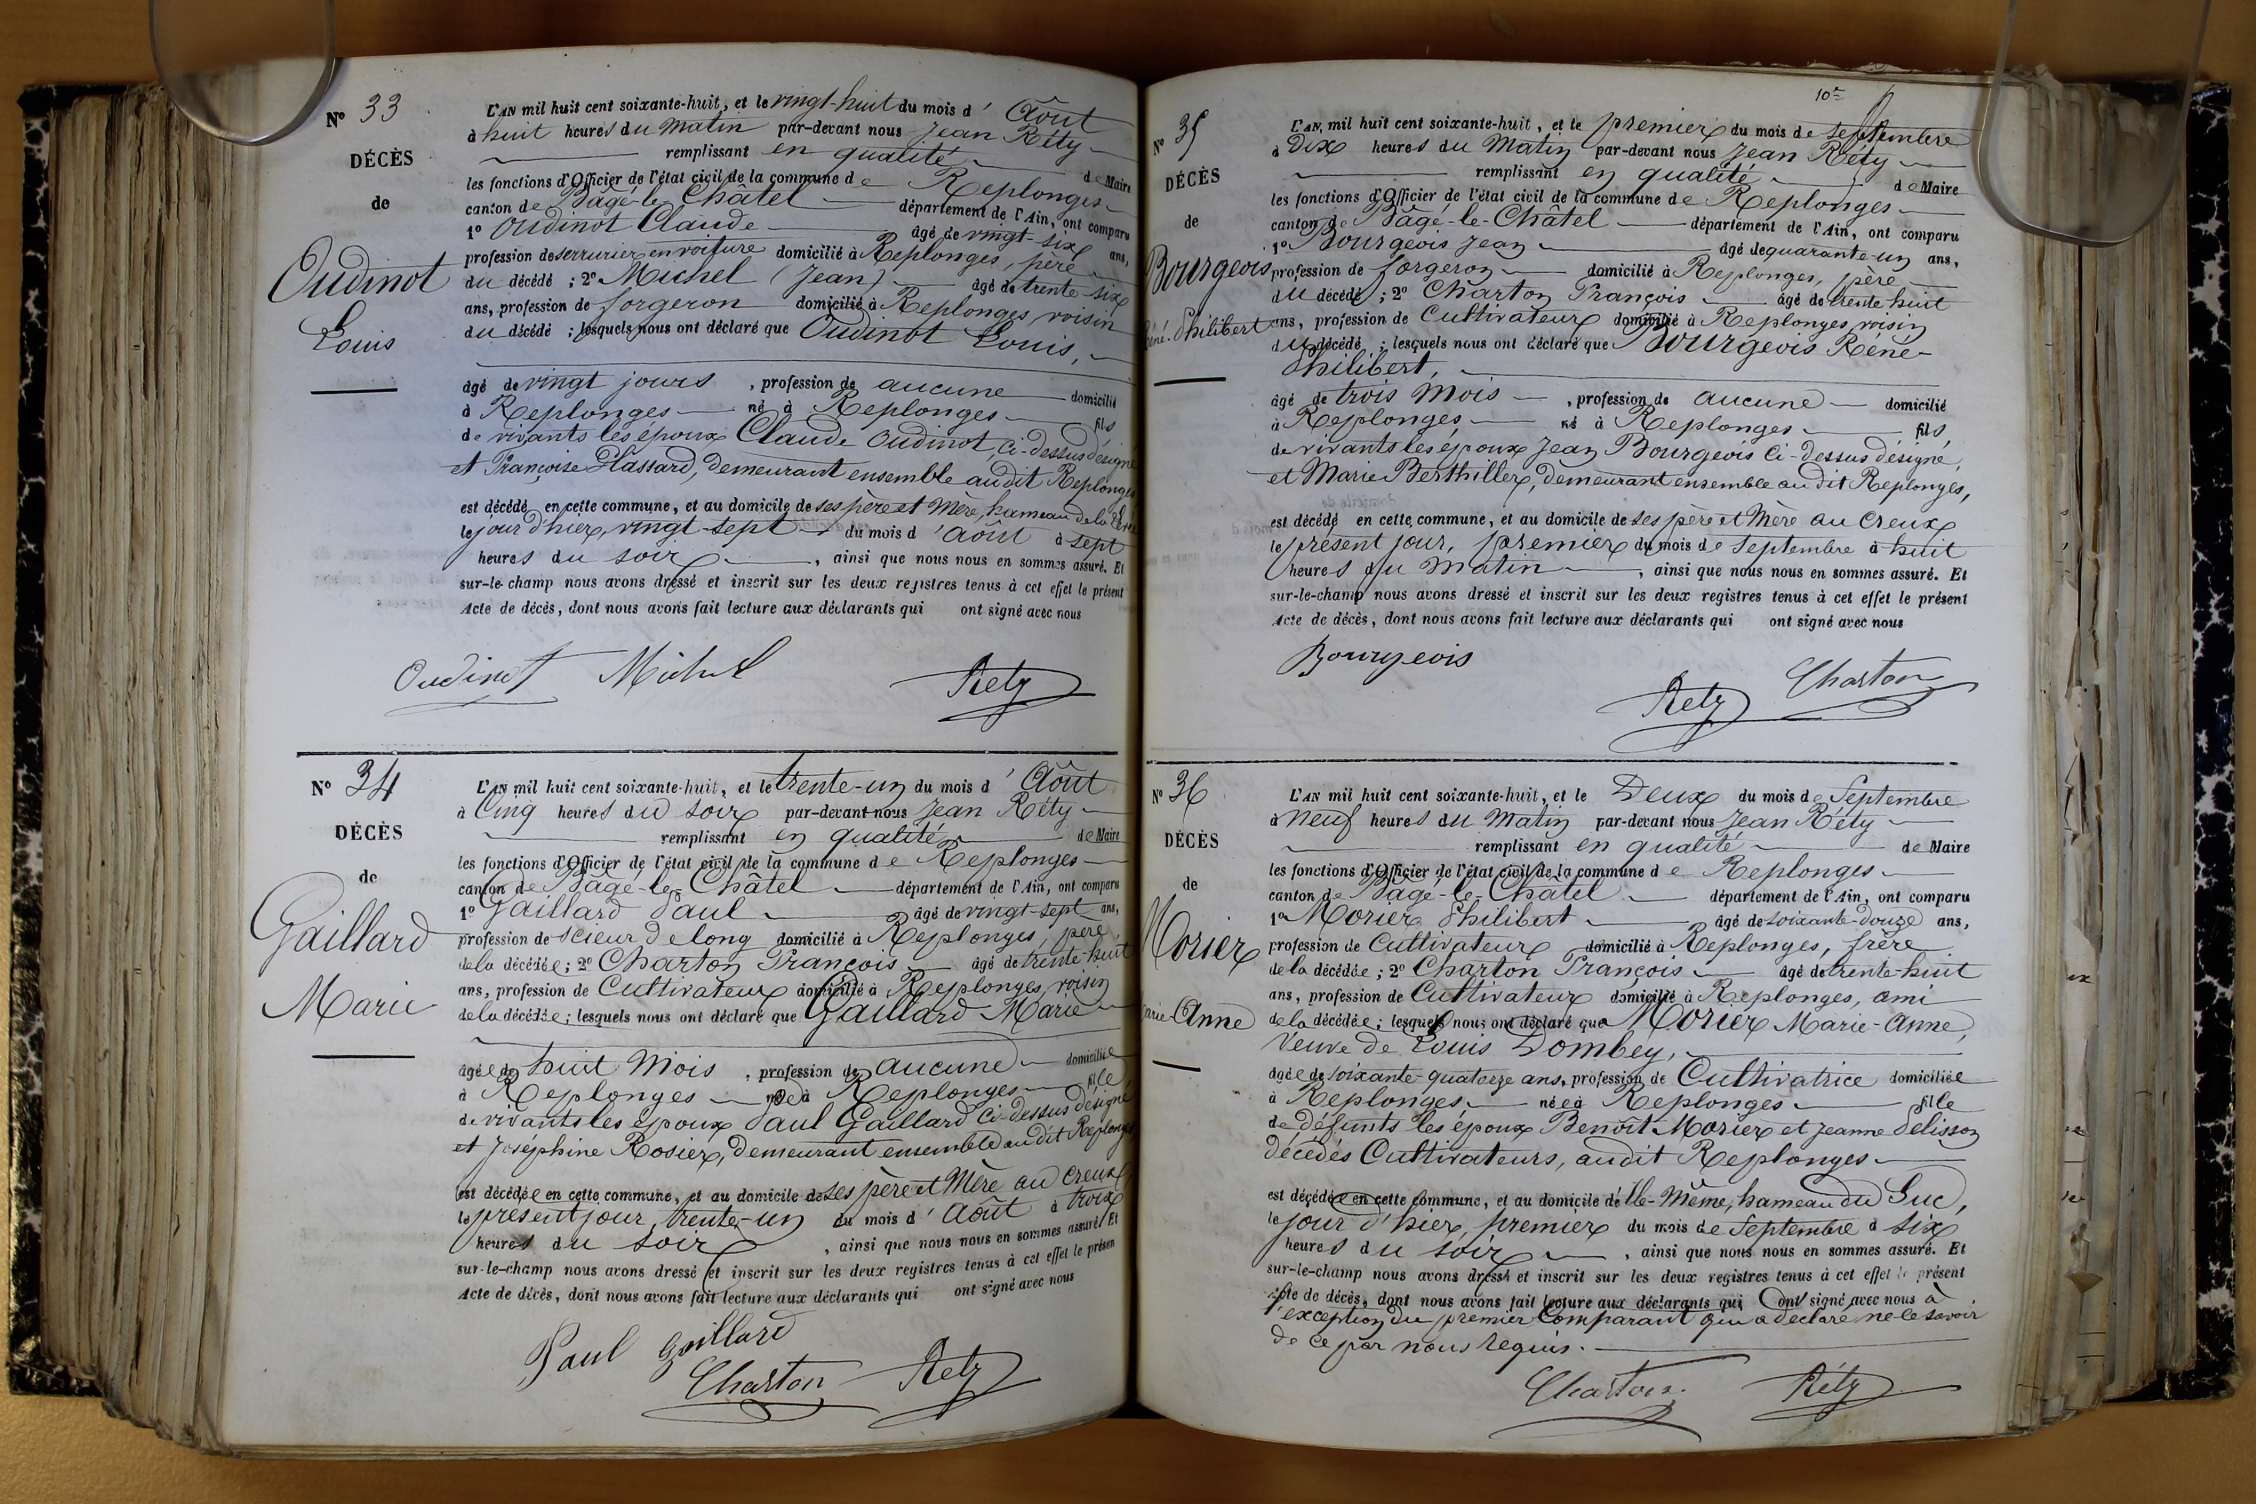 N° 33
DÉCÈS
de
Oudinot
Louis
L'AN mil huit cent soixante-huit, et le vingt-huit du mois d'Août
à huit heures du matin par-devant nous Jean Réty
remplissant en qualité de Maire
les fonctions d'Officier de l'état civil de la commune de Replonges
canton de Bâgé-le-Châtel département de l'Ain, ont comparu
1° Oudinot Claude âgé de vingt-six ans,
profession de serrurier en voiture domicilié à Replonges, père
du décédé ; 2° Michel (Jean) âgé de trente-six
ans, profession de forgeron domicilié à Replonges, voisin
du décédé ; lesquels nous ont déclaré que Oudinot Louis,
âgé de vingt jours, profession de aucune domicilié
à Replonges né à Replonges fils
de vivants les époux Claude Oudinot, ci-dessus désigné
et Françoise Hassard, demeurant ensemble audit Replonges
est décédé en cette commune, et au domicile de ses père et Mère, hameau de la
le jour d'hier, vingt-sept du mois d'Août à sept
heures du soir, ainsi que nous nous en sommes assuré. Et
sur-le-champ nous avons dressé et inscrit sur les deux registres tenus à cet effet le présent
Acte de décès, dont nous avons fait lecture aux déclarants qui ont signé avec nous
Oudinot Michel Rety
N° 34
DÉCÈS
de
Gaillard
Marie
L'AN mil huit cent soixante-huit, et le trente-un du mois d'Août
à Cinq heures du soir par-devant nous Jean Réty
remplissant en qualité de Maire
les fonctions d'Officier de l'état civil de la commune de Replonges
canton de Bâgé-le-Châtel département de l'Ain, ont comparu
1° Gaillard Paul âgé de vingt-sept ans,
profession de scieur de long domicilié à Replonges, père
de la décédée ; 2° Charton François âgé de trente-huit
ans, profession de Cultivateur domicilié à Replonges, voisin
de la décédée ; lesquels nous ont déclaré que Gaillard Marie
âgée de huit Mois, profession de aucune domiciliée
à Replonges née à Replonges fille
de vivants les époux Paul Gaillard ci-dessus désigné
et Joséphine Rosier, demeurant ensemble audit Replonges
est décédée en cette commune, et au domicile de ses père et Mère au Creux
le présent jour, trente-un du mois d'Août à trois
heures du soir, ainsi que nous nous en sommes assuré. Et
sur-le-champ nous avons dressé et inscrit sur les deux registres tenus à cet effet le présen
Acte de décès, dont nous avons fait lecture aux déclarants qui ont signé avec nous
Paul Gaillard
Charton Rety
10e
N° 35
DÉCÈS
de
Bourgeois
Réné-Philibert
L'AN mil huit cent soixante-huit, et le premier du mois de Septembre
à Dix heures du Matin par-devant nous Jean Réty
remplissant en qualité de Maire
les fonctions d'Officier de l'état civil de la commune de Replonges
canton de Bâgé-le-Châtel département de l'Ain, ont comparu
1° Bourgeois Jean âgé de quarante-un ans,
profession de forgeron domicilié à Replonges, père
du décédé ; 2° Charton François âgé de trente huit
ans, profession de Cultivateur domicilié à Replonges, voisin
du décédé ; lesquels nous ont déclaré que Bourgeois Réné-
Philibert,
âgé de trois Mois, profession de aucune domicilié
à Replonges né à Replonges fils
de vivants les époux Jean Bourgeois Ci-dessus désigné,
et Marie Berthiller, demeurant ensemble audit Replonges,
est décédé en cette commune, et au domicile de ses père et Mère au Creux
le présent jour, premier du mois de Septembre à huit
heures du Matin, ainsi que nous nous en sommes assuré. Et
sur-le-champ nous avons dressé et inscrit sur les deux registres tenus à cet effet le présent
Acte de décès, dont nous avons fait lecture aux déclarants qui ont signé avec nous
Bourgeois
Rety Charton
N° 36
DÉCÈS
de
Morier
Marie-Anne
L'AN mil huit cent soixante-huit, et le Deux du mois de Septembre
à neuf heures du Matin par-devant nous Jean Réty
remplissant en qualité de Maire
les fonctions d'Officier de l'état civil de la commune de Replonges
canton de Bâgé-le-Châtel département de l'Ain, ont comparu
1° Morier Philibert âgé de soixante-douze ans,
profession de Cultivateur domicilié à Replonges, frère
de la décédée ; 2° Charton François âgé de trente-huit
ans, profession de Cultivateur domicilié à Replonges, ami
de la décédée ; lesquels nous ont déclaré que Morier Marie-Anne,
Veuve de Louis Dombey,
âgée de soixante-quatorze ans, profession de Cultivatrice domiciliée
à Replonges née à Replonges fille
de défunts les époux Benoît Morier et Jeanne Pelisson
décédés Cultivateurs, audit Replonges
est décédée en cette commune, et au domicile d'elle-Même, hameau du Guc,
le jour d'hier, premier du mois de Septembre à six
heures du soir, ainsi que nous nous en sommes assuré. Et
sur-le-champ nous avons dressé et inscrit sur les deux registres tenus à cet effet le présent
Acte de décès, dont nous avons fait lecture aux déclarants qui ont signé avec nous à
l'exception du premier Comparant qui a déclaré ne le savoir
de ce par nous requis.
Charton Réty